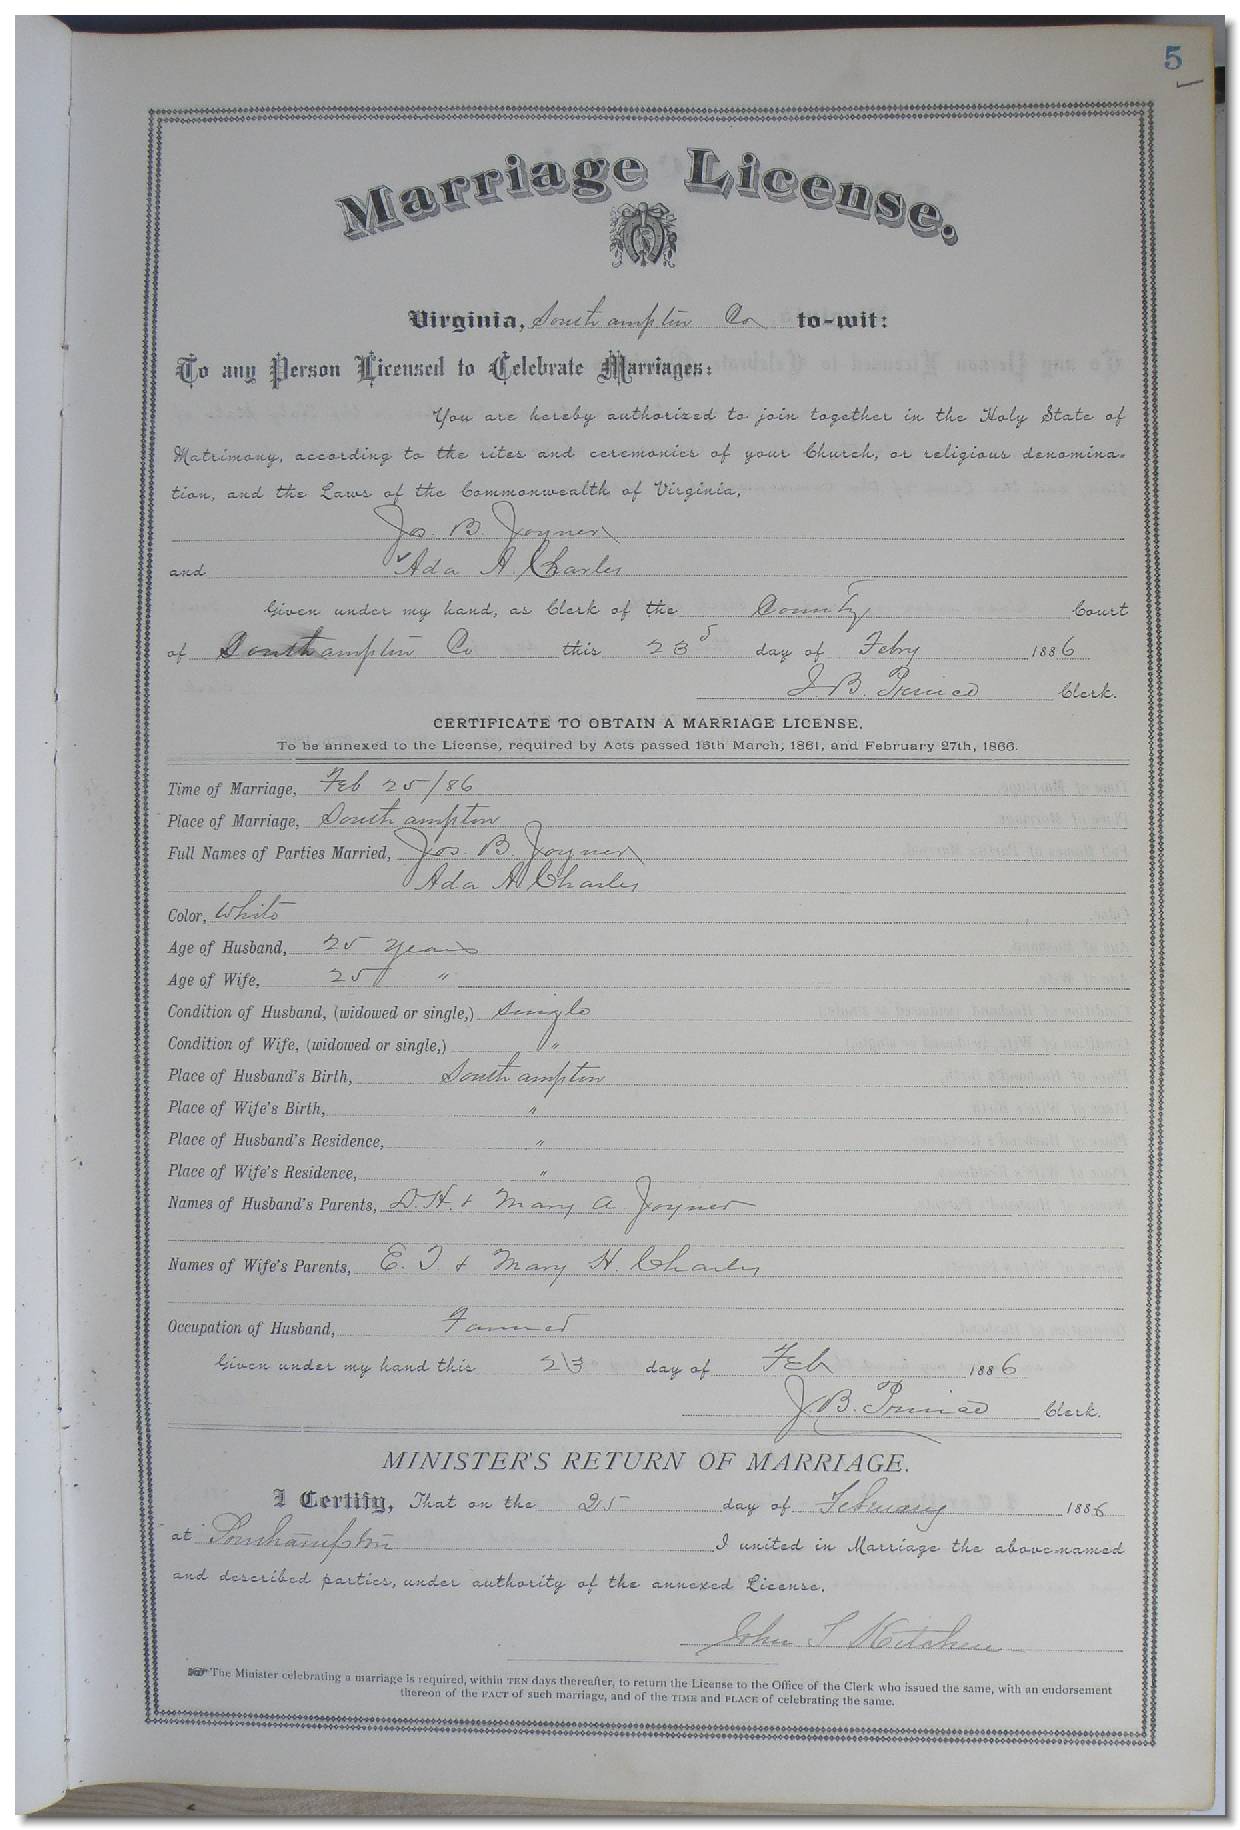 5
Marriage License.
Virginia, Southampton Co to-wit:
To any Person Licensed to Celebrate Marriages:
You are hereby authorized to join together in the Holy State of
Matrimony, according to the rites and ceremonies of your Church, or religious denomina-
tion, and the Laws of the Commonwealth of Virginia,
Jos. B. Joyner
and Ada A. Charles
Given under my hand, as Clerk of the County Court
of Southampton Co this 23 day of Feby 1886
J B. Prince Clerk.
CERTIFICATE TO OBTAIN A MARRIAGE LICENSE.
To be annexed to the License, required by Acts passed 15th March, 1861, and February 27th, 1866.
Time of Marriage, Feb 25/86
Place of Marriage, Southampton
Full Names of Parties Married, Jos. B. Joyner
Ada A Charles
Color, White
Age of Husband, 25 years
Age of Wife, 25 "
Condition of Husband, (widowed or single,) single
Condition of Wife, (widowed or single,) "
Place of Husband's Birth, Southampton
Place of Wife's Birth, "
Place of Husband's Residence, "
Place of Wife's Residence, "
Names of Husband's Parents, D. H. & Mary A Joyner
Names of Wife's Parents, E. T. & Mary H. Charles
Occupation of Husband, Farmer
Given under my hand this 23 day of Feb 1886
J B. Prince Clerk.
MINISTER'S RETURN OF MARRIAGE.
I Certify, That on the 25 day of February 1886
at Southampton I united in Marriage the above-named
and described parties, under authority of the annexed License.
John T Kitchen
The Minister celebrating a marriage is required, within TEN days thereafter, to return the License to the Office of the Clerk who issued the same, with an endorsement
thereon of the FACT of such marriage, and of the TIME and PLACE of celebrating the same.